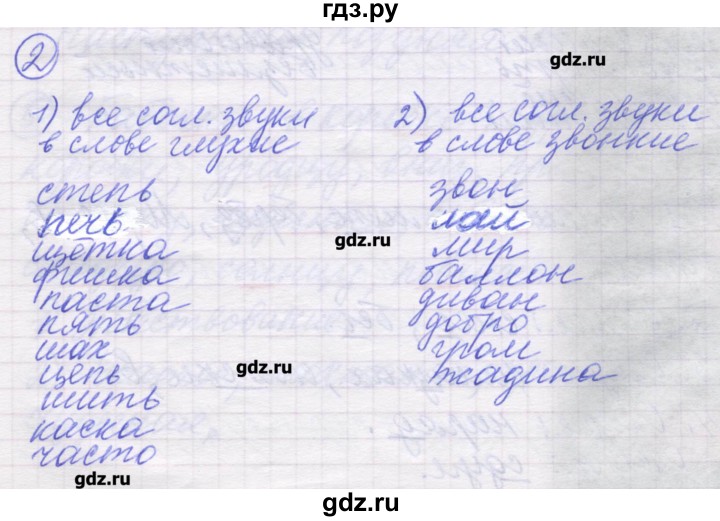 гдз.ру
gdz.ru
2
1) все согл. звуки
в слове глухие
степь
печь
щётка
фишка
паста
пять
шах
цепь
шить
каска
часто
2) все согл. звуки
в слове звонкие
звон
лай
мир
баллон
диван
добро
гром
жадина
gdz.ru
gdz.ru
gdz.ru
gdz.ru